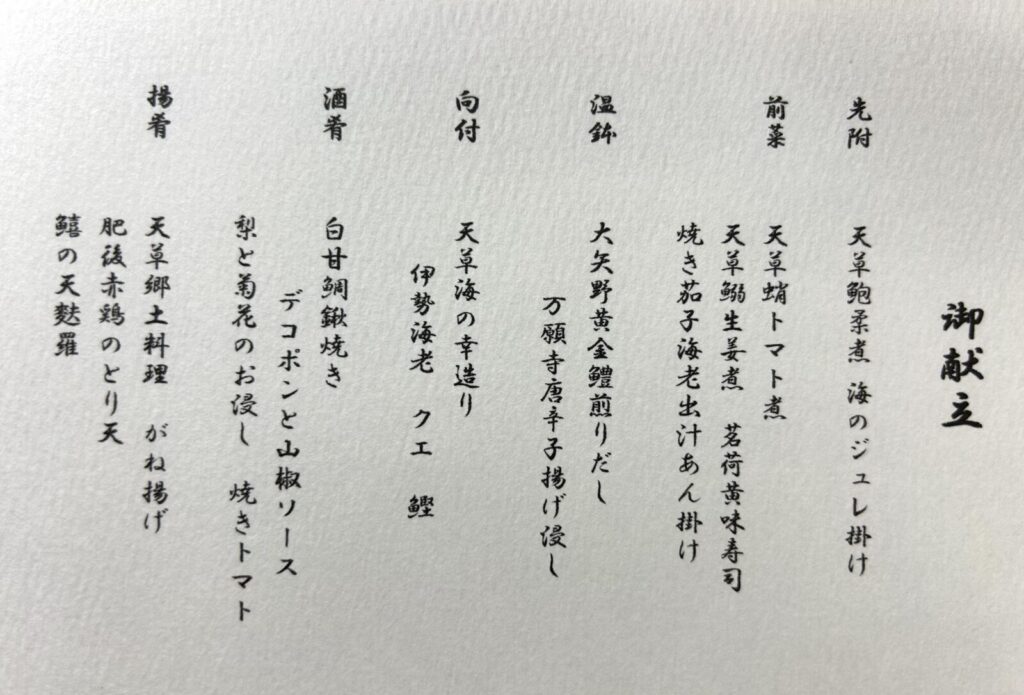 御献立
先附 天草鮑柔煮 海のジュレ掛け
前菜 天草蛸トマト煮
天草鰯生姜煮 茗荷黄味寿司
焼き茄子海老出汁あん掛け
温鉢 大矢野黄金鱧煎りだし
万願寺唐辛子揚げ浸し
向付 天草海の幸造り
伊勢海老 クエ 鰹
酒肴 白甘鯛鍬焼き
デコポンと山椒ソース
梨と菊花のお浸し 焼きトマト
揚肴 天草郷土料理 がね揚げ
肥後赤鶏のとり天
鱚の天麩羅